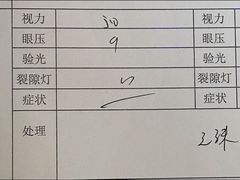 视力 视力
眼压 9 眼压
验光 验光
裂隙灯 裂隙灯
症状 症状
处理